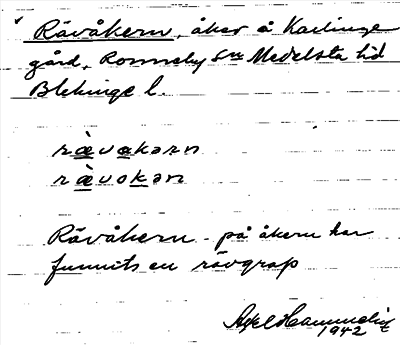 Rävåkern, åker å Karlinge
gård, Ronneby sn Medelsta hd
Blekinge l.
rævakərn
rævokən
Rävåkern - på åkern har
funnits en rävgrop
Axel
1942